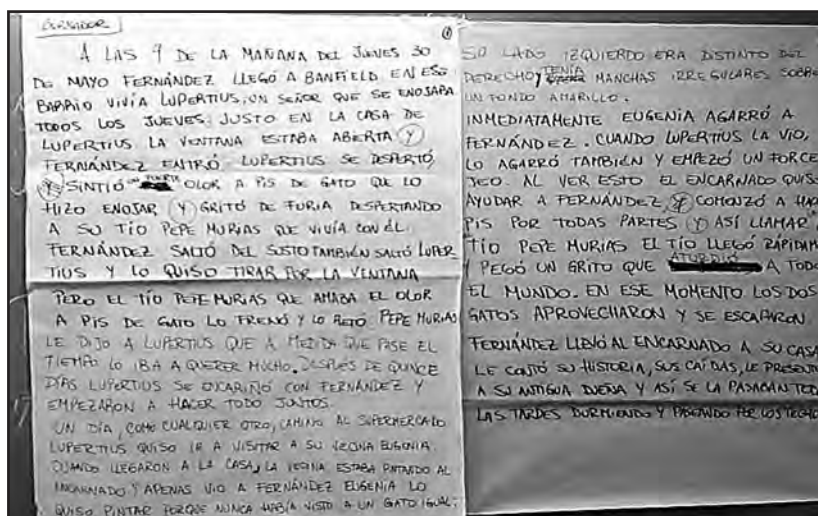 BORRADOR
①
A LAS 9 DE LA MAÑANA DEL JUEVES 30
DE MAYO FERNÁNDEZ LLEGÓ A BANFIELD EN ESE
BARRIO VIVÍA LUPERTIUS, UN SEÑOR QUE SE ENOJABA
TODOS LOS JUEVES. JUSTO EN LA CASA DE
LUPERTIUS LA VENTANA ESTABA ABIERTA Y
FERNÁNDEZ ENTRÓ. LUPERTIUS SE DESPERTÓ,
Y SINTIÓ UN FUERTE OLOR A PIS DE GATO QUE LO
HIZO ENOJAR Y GRITÓ DE FURIA DESPERTANDO
A SU TÍO PEPE MURIAS QUE VIVÍA CON ÉL.
FERNÁNDEZ SALTÓ DEL SUSTO TAMBIÉN SALTÓ LUPER
TIUS Y LO QUISO TIRAR POR LA VENTANA
PERO EL TÍO PEPE MURIAS QUE AMABA EL OLOR
A PIS DE GATO LO FRENÓ Y LO RETÓ. PEPE MURIAS
LE DIJO A LUPERTIUS QUE A MEDIDA QUE PASE EL
TIEMPO LO IBA A QUERER MUCHO. DESPUÉS DE QUINCE
DÍAS LUPERTIUS SE ENCARIÑÓ CON FERNÁNDEZ Y
EMPEZARON A HACER TODO JUNTOS.
UN DÍA, COMO CUALQUIER OTRO, CAMINO AL SUPERMERCADO
LUPERTIUS QUISO IR A VISITAR A SU VECINA EUGENIA.
CUANDO LLEGARON A LA CASA, LA VECINA ESTABA PINTANDO AL
ENCARNADO Y APENAS VIO A FERNÁNDEZ EUGENIA LO
QUISO PINTAR PORQUE NUNCA HABÍA VISTO A UN GATO IGUAL:
SU LADO IZQUIERDO ERA DISTINTO DEL
DERECHO, Y TENÍA MANCHAS IRREGULARES SOBRE
UN FONDO AMARILLO.
INMEDIATAMENTE EUGENIA AGARRÓ A
FERNÁNDEZ. CUANDO LUPERTIUS LA VIO,
LO AGARRÓ TAMBIÉN Y EMPEZÓ UN FORCE
JEO. AL VER ESTO EL ENCARNADO QUIS
AYUDAR A FERNÁNDEZ Y COMENZÓ A HAC
PIS POR TODAS PARTES Y ASÍ LLAMAR
TÍO PEPE MURIAS EL TÍO LLEGÓ RÁPIDAM
Y PEGÓ UN GRITO QUE ATURDIÓ A TODO
EL MUNDO. EN ESE MOMENTO LOS DOS
GATOS APROVECHARON Y SE ESCAPARON
FERNÁNDEZ LLEVÓ AL ENCARNADO A SU CASA
LE CONTÓ SU HISTORIA, SUS CAÍDAS, LE PRESENT
A SU ANTIGUA DUEÑA Y ASÍ SE LA PASABAN TOD
LAS TARDES DURMIENDO Y PASEANDO POR LOS TECHO